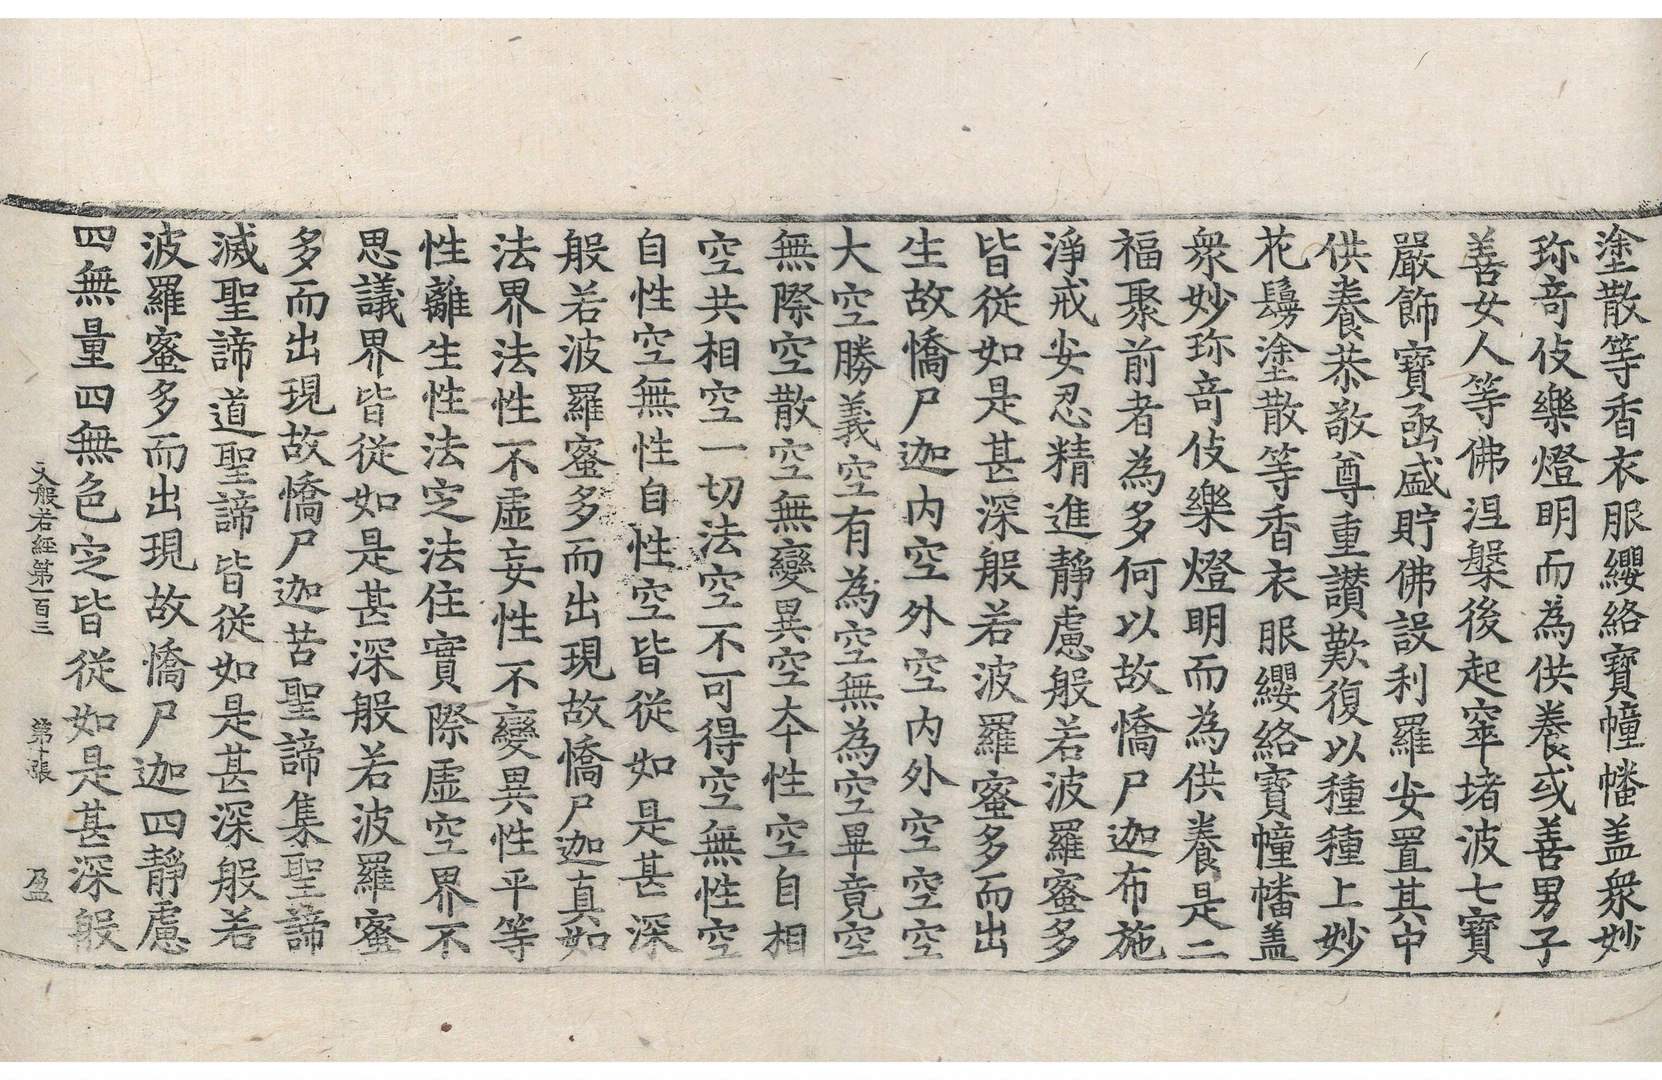 塗散等香衣服纓絡寶幢幡盖衆妙
珎竒伎樂燈明而為供養或善男子
善女人等佛涅槃後起窣堵波七寶
嚴飾寶凾盛貯佛設利羅安置其中
供養恭敬尊重讃歎復以種種上妙
花鬘塗散等香衣服纓絡寶幢幡盖
衆妙珎竒伎樂燈明而為供養是二
福聚前者為多何以故憍尸迦布施
淨戒安忍精進靜慮般若波羅蜜多
皆從如是甚深般若波羅蜜多而出
生故憍尸迦内空外空内外空空空
大空勝義空有為空無為空畢竟空
無際空散空無變異空夲性空自相
空共相空一切法空不可得空無性空
自性空無性自性空皆從如是甚深
般若波羅蜜多而出現故憍尸迦真如
法界法性不虛妄性不變異性平等
性離生性法定法住實際虛空界不
思議界皆從如是甚深般若波羅蜜
多而出現故憍尸迦苦聖諦集聖諦
滅聖諦道聖諦皆從如是甚深般若
波羅蜜多而出現故憍尸迦四靜慮
四無量四無色定皆從如是甚深般
大般若經第一百三 第十張 盈